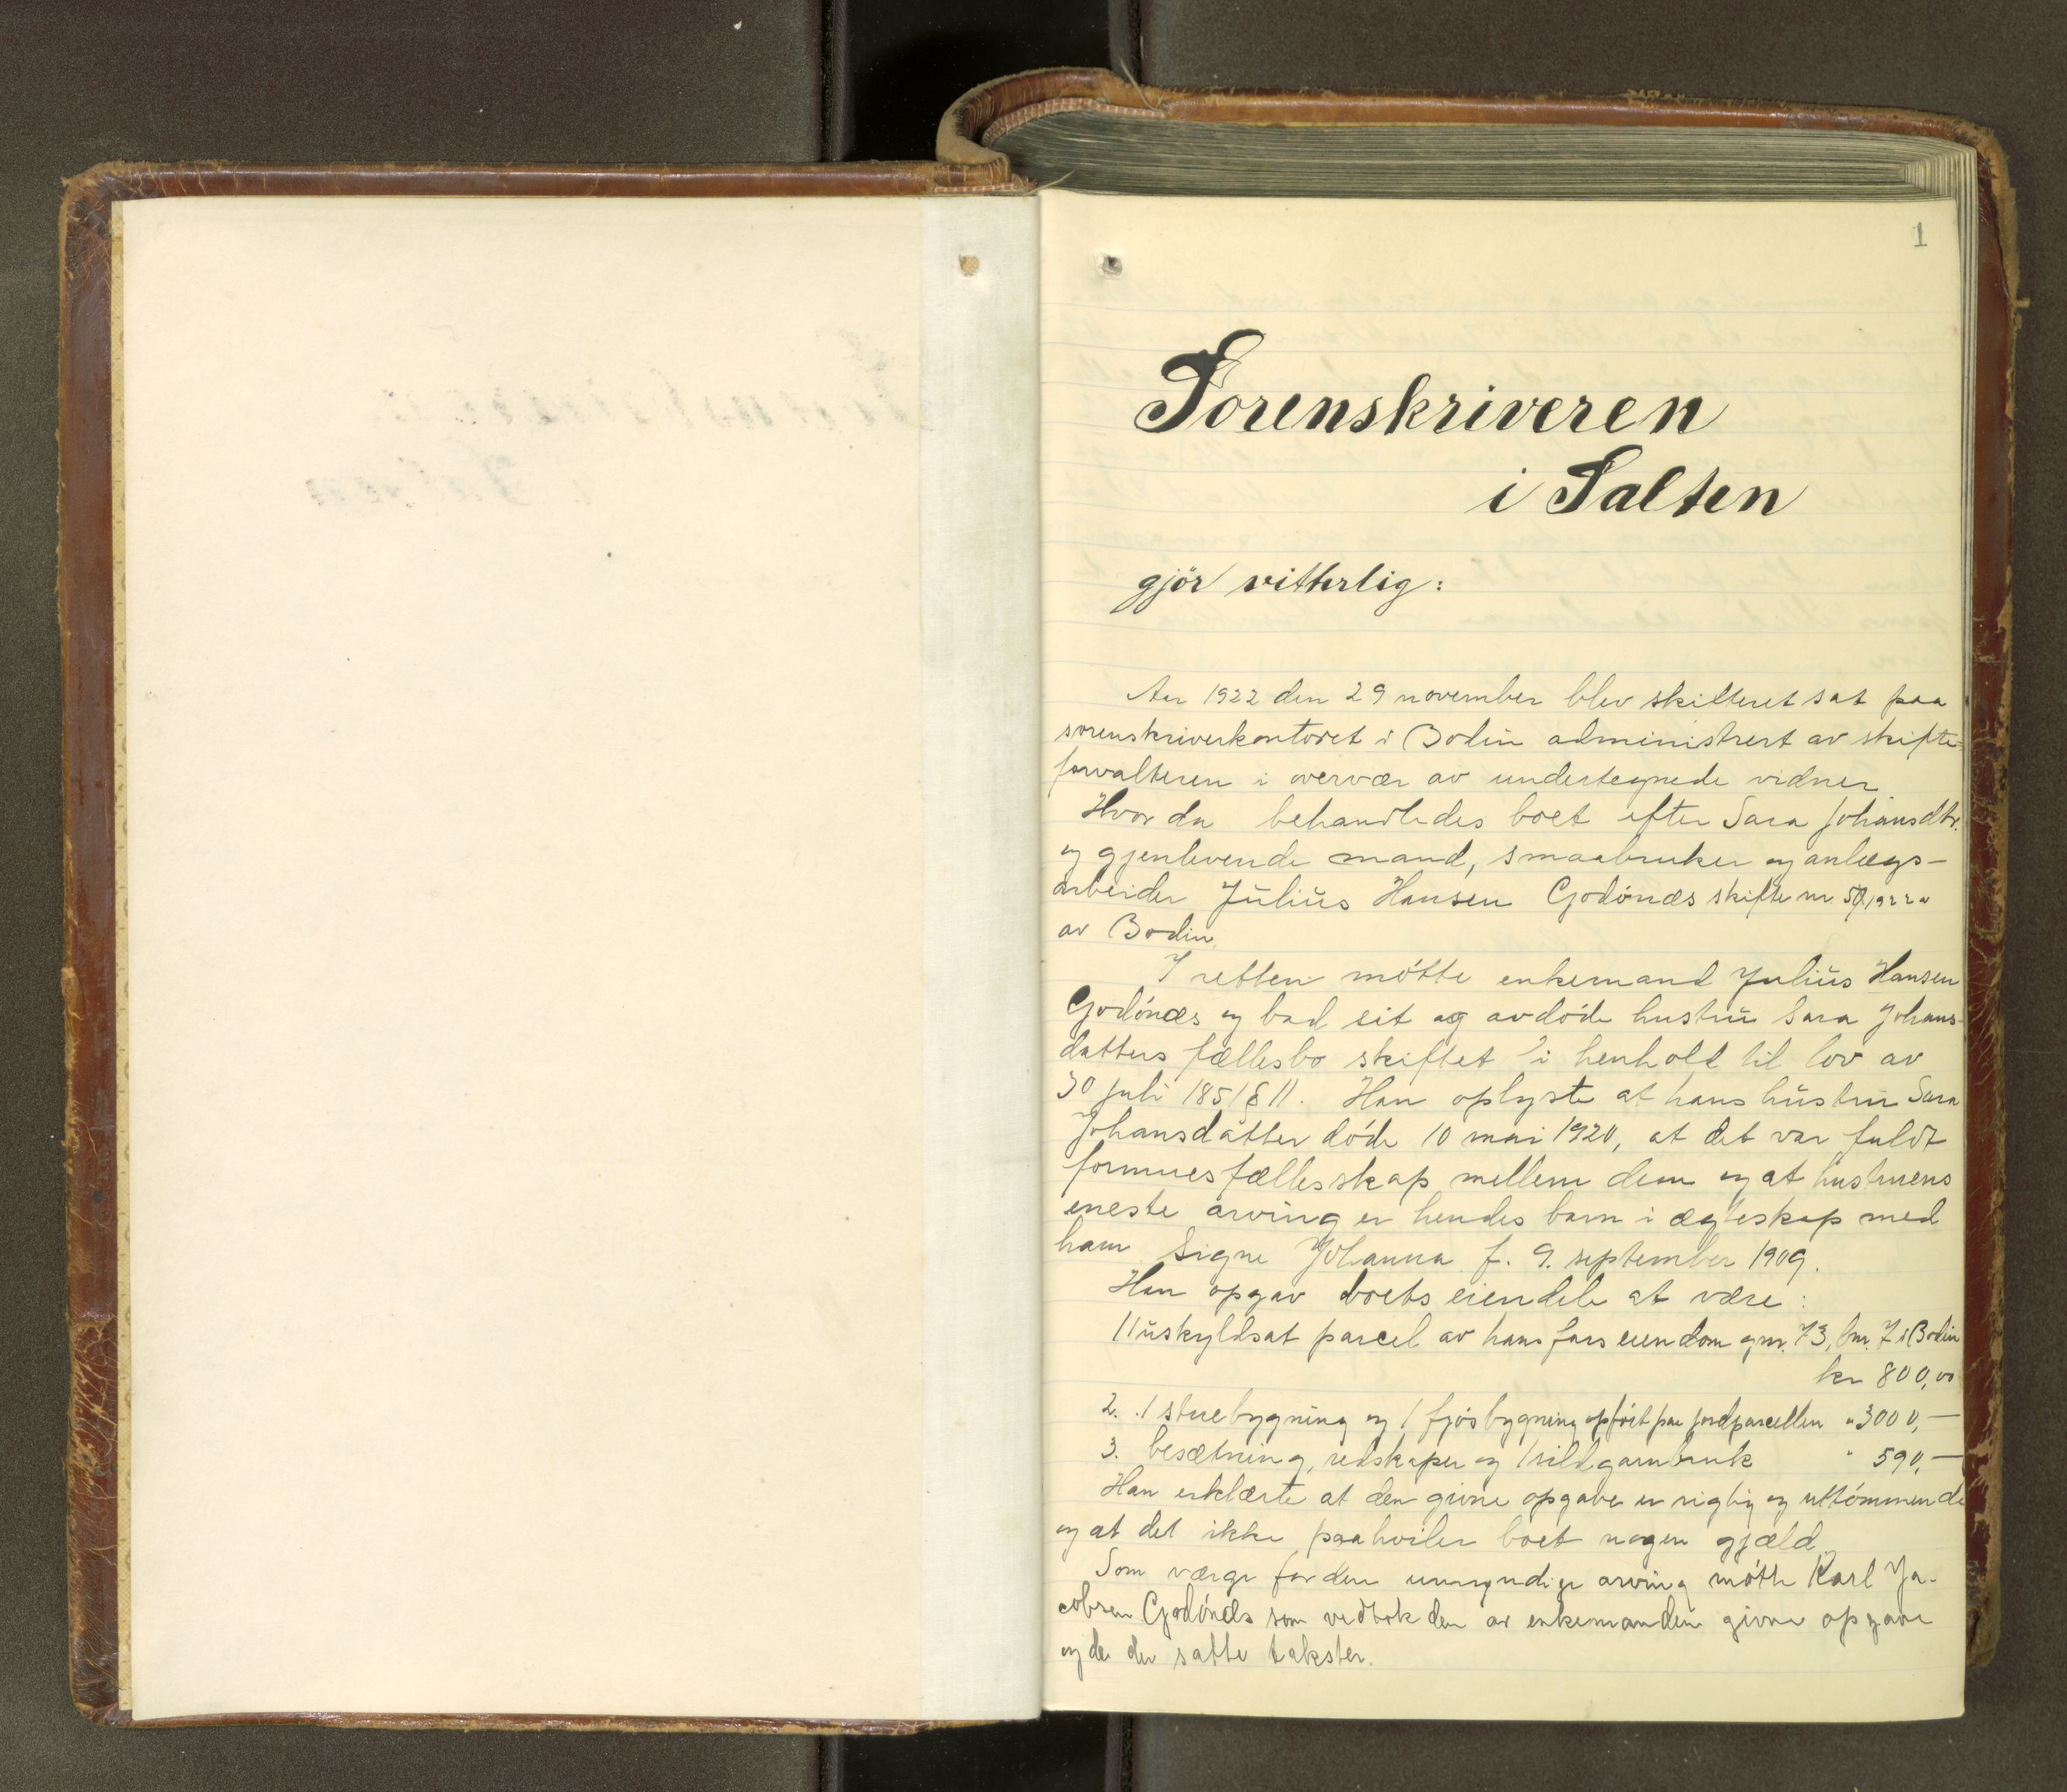 1
Sorenskriveren
i Salten
gjör vitterlig:
Aar 1922 den 29 november blev skifteret sat paa
sorenskriverkontoret i Bodin administrert av skifte-
forvalteren i overvær av undertegnede vidner
Hvor da behandledes boet efter Sara Johansdtr.
og gjenlevende mand, smaabruker og anlægs-
arbeider Julius Hansen Godónæs skifte nr.
av Bodin.
I retten mótte enkemand Julius Hansen
Godónæs og bad sit og avdóde hustru Sara Johans-
datters fællesbo skiftet i henhold til lov av
30 juli 1851 § 11. Han oplyste at hans hustru Sara
Johansdatter dóde 10 mai 1920, at det var fuldt
formuesfællesskap mellem dem og at hustruens
eneste arving er hendes barn i ægteskap med
ham Signe Johanna f. 9. september 1909.
Han opgav boets eiendele at være:
1 Uskyldsat parcel av hans fars eiendom gnr. 73, bnr. 7 i Bodin
kr 800,00
2. 1 stuebygning og 1 fjósbygning opfórt paa jordparcellen " 3000,—
3. besætning, redskaper og 1 sildgarnbruk " 590,—
Han erklærte at den givne opgave er rigtig og uttómmende
og at det ikke paahviler boet nogen gjæld.
Som værge for den umyndige arving mótte Karl Ja-
cobsen Godónæs som vedtok den av enkemanden givne opgave
og de der satte takster.